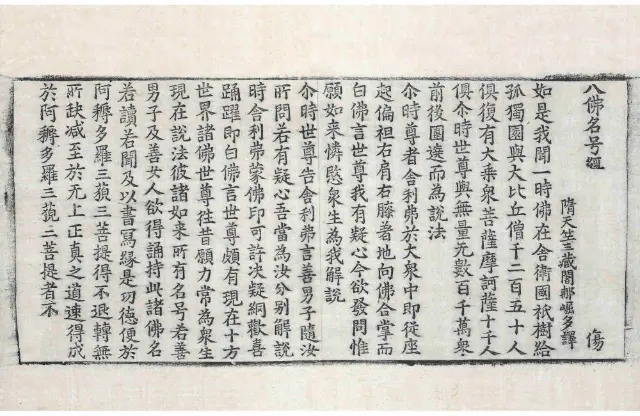 八佛名号經
隋天竺三藏闍那崛多譯
傷
如是我聞一時佛在舍衛國祇樹給
孤獨園與大比丘僧千二百五十人
俱復有大乘衆菩薩摩訶薩十千人
俱尒時世尊與無量无數百千萬衆
前後圍遶而為說法
尒時尊者舍利弗於大衆中即從座
起偏袒右肩右膝著地向佛合掌而
白佛言世尊我有疑心今欲發問惟
願如来憐愍衆生為我解說
尒時世尊告舍利弗言善男子隨汝
所問若有疑心吾當為汝分别解說
時舍利弗蒙佛印可許决疑網歡喜
踊躍即白佛言世尊頗有現在十方
世界諸佛世尊徃昔願力常為衆生
現在說法彼諸如来所有名号若善
男子及善女人欲得誦持此諸佛名
若讀若聞及以書寫縁是功德便於
阿耨多羅三藐三菩提得不退轉無
所缺减至於无上正真之道速得成
於阿耨多羅三藐三菩提者不